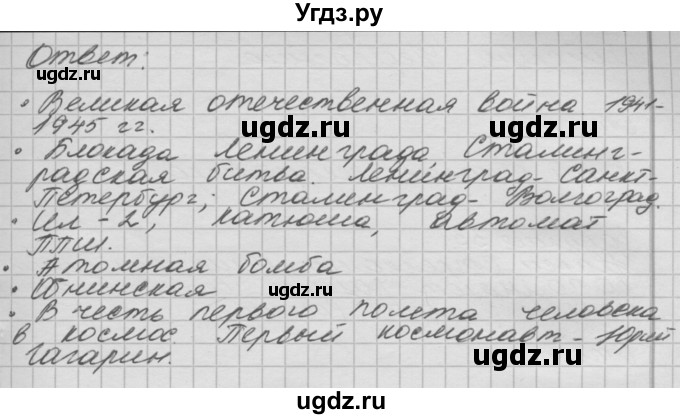 Угдз.ру
Ответ:
ugdz.ru
• Великая отечественная война 1941-
1945 гг.
ugdz.ru
ugdz.ru
• Блокада Ленинграда, Сталинг-
радская битва. Ленинград - Санкт-
Петербург; Сталинград - Волгоград.
ugdz.ru
ugdz.ru
• Ил - 2, катюша, автомат
ППШ.
• Атомная бомба
• Обнинская
ugdz.ru
• В честь первого полета человека
в космос. Первый космонавт - Юрий
Гагарин.
ugdz.ru
ugdz.ru
ugdz.ru